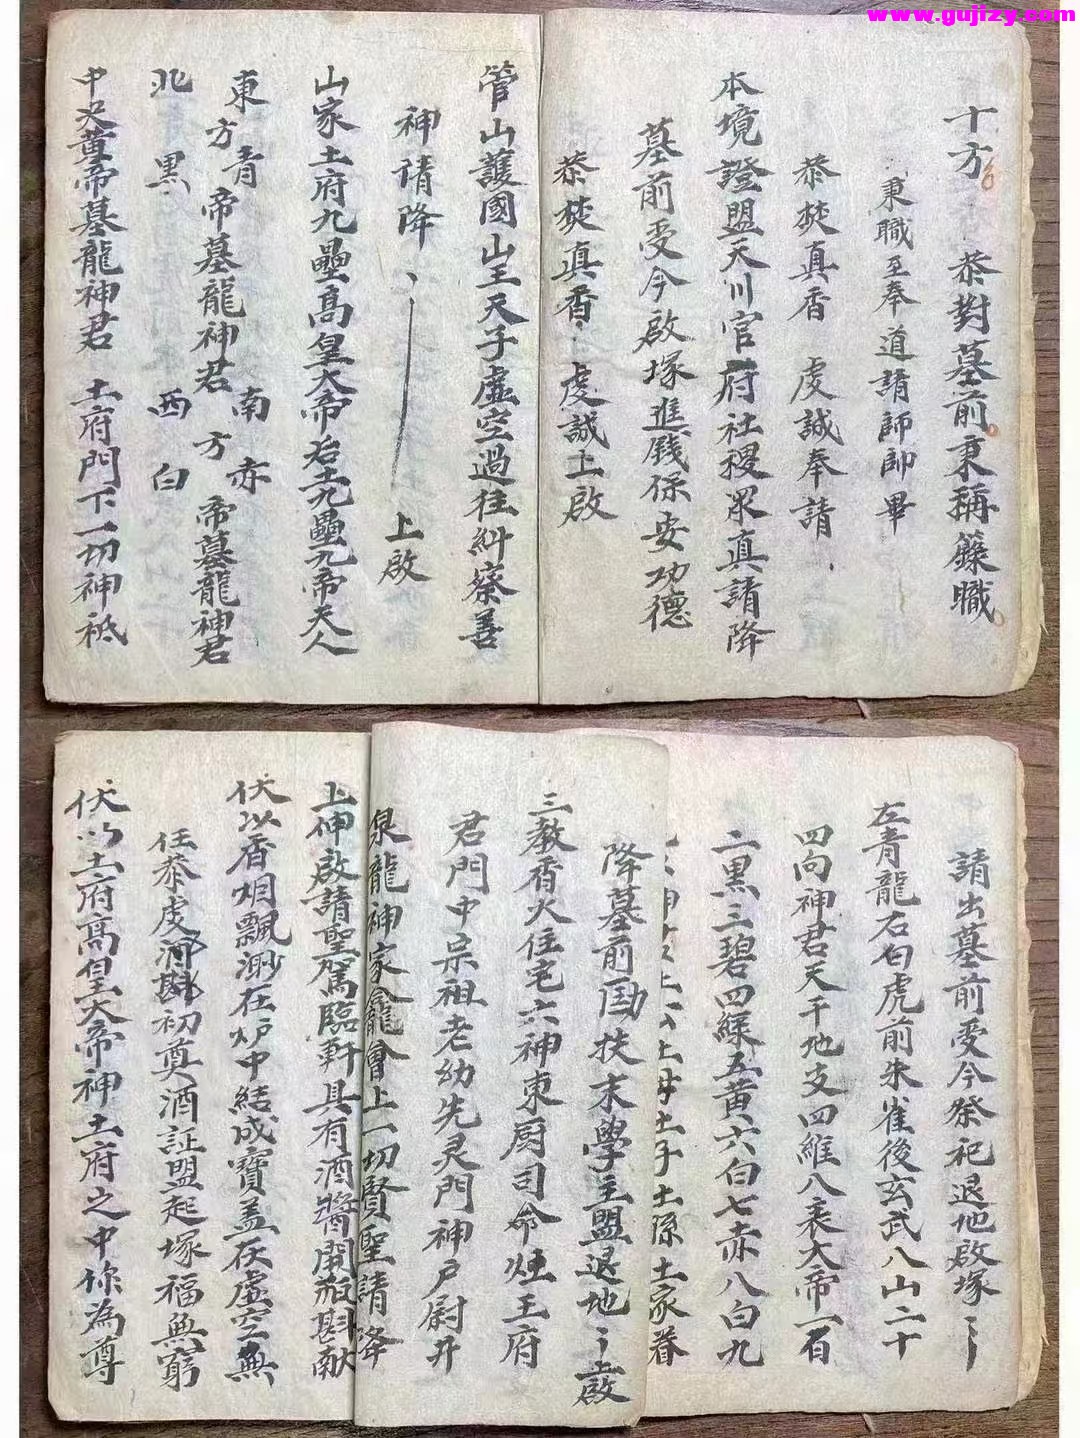 www.gujizy.com
十方 恭對墓前秉稱籙職
秉職至奉道請師師畢
恭焚真香 虔誠奉請
本境證盟天川官府社稷眾真請降
墓前受今啟塚進錢保安功德
恭焚真香 虔誠上啟
管山護國山王天子虛空過往糾察善
神請降 上啟
山家土府九壘高皇大帝后土九壘元帝夫人
東方青帝墓龍神君 南方赤帝墓龍神君
北 黑 西 白
中央黃帝墓龍神君 土府門下一切神祇
請出墓前受今祭祀退地啟塚
左青龍右白虎前朱雀後玄武八山二十
四向神君天干地支四維八表大帝一白
二黑三碧四綠五黃六白七赤八白九
土子土孫土家眷
降墓前 扶末學主盟退地 上啟
三教香火住宅六神東厨司命烟王府
君門中宗祖老幼先灵門神户尉井
泉龍神家龕會上一切賢聖請降
上伸啟請聖駕臨軒具有酒醬開瓶斟献
伏以香烟飄渺在炉中結成寶盖在虛空無
任恭虔 斟初奠酒証盟起塚福無窮
伏以土府高皇大帝神土府之中你為尊